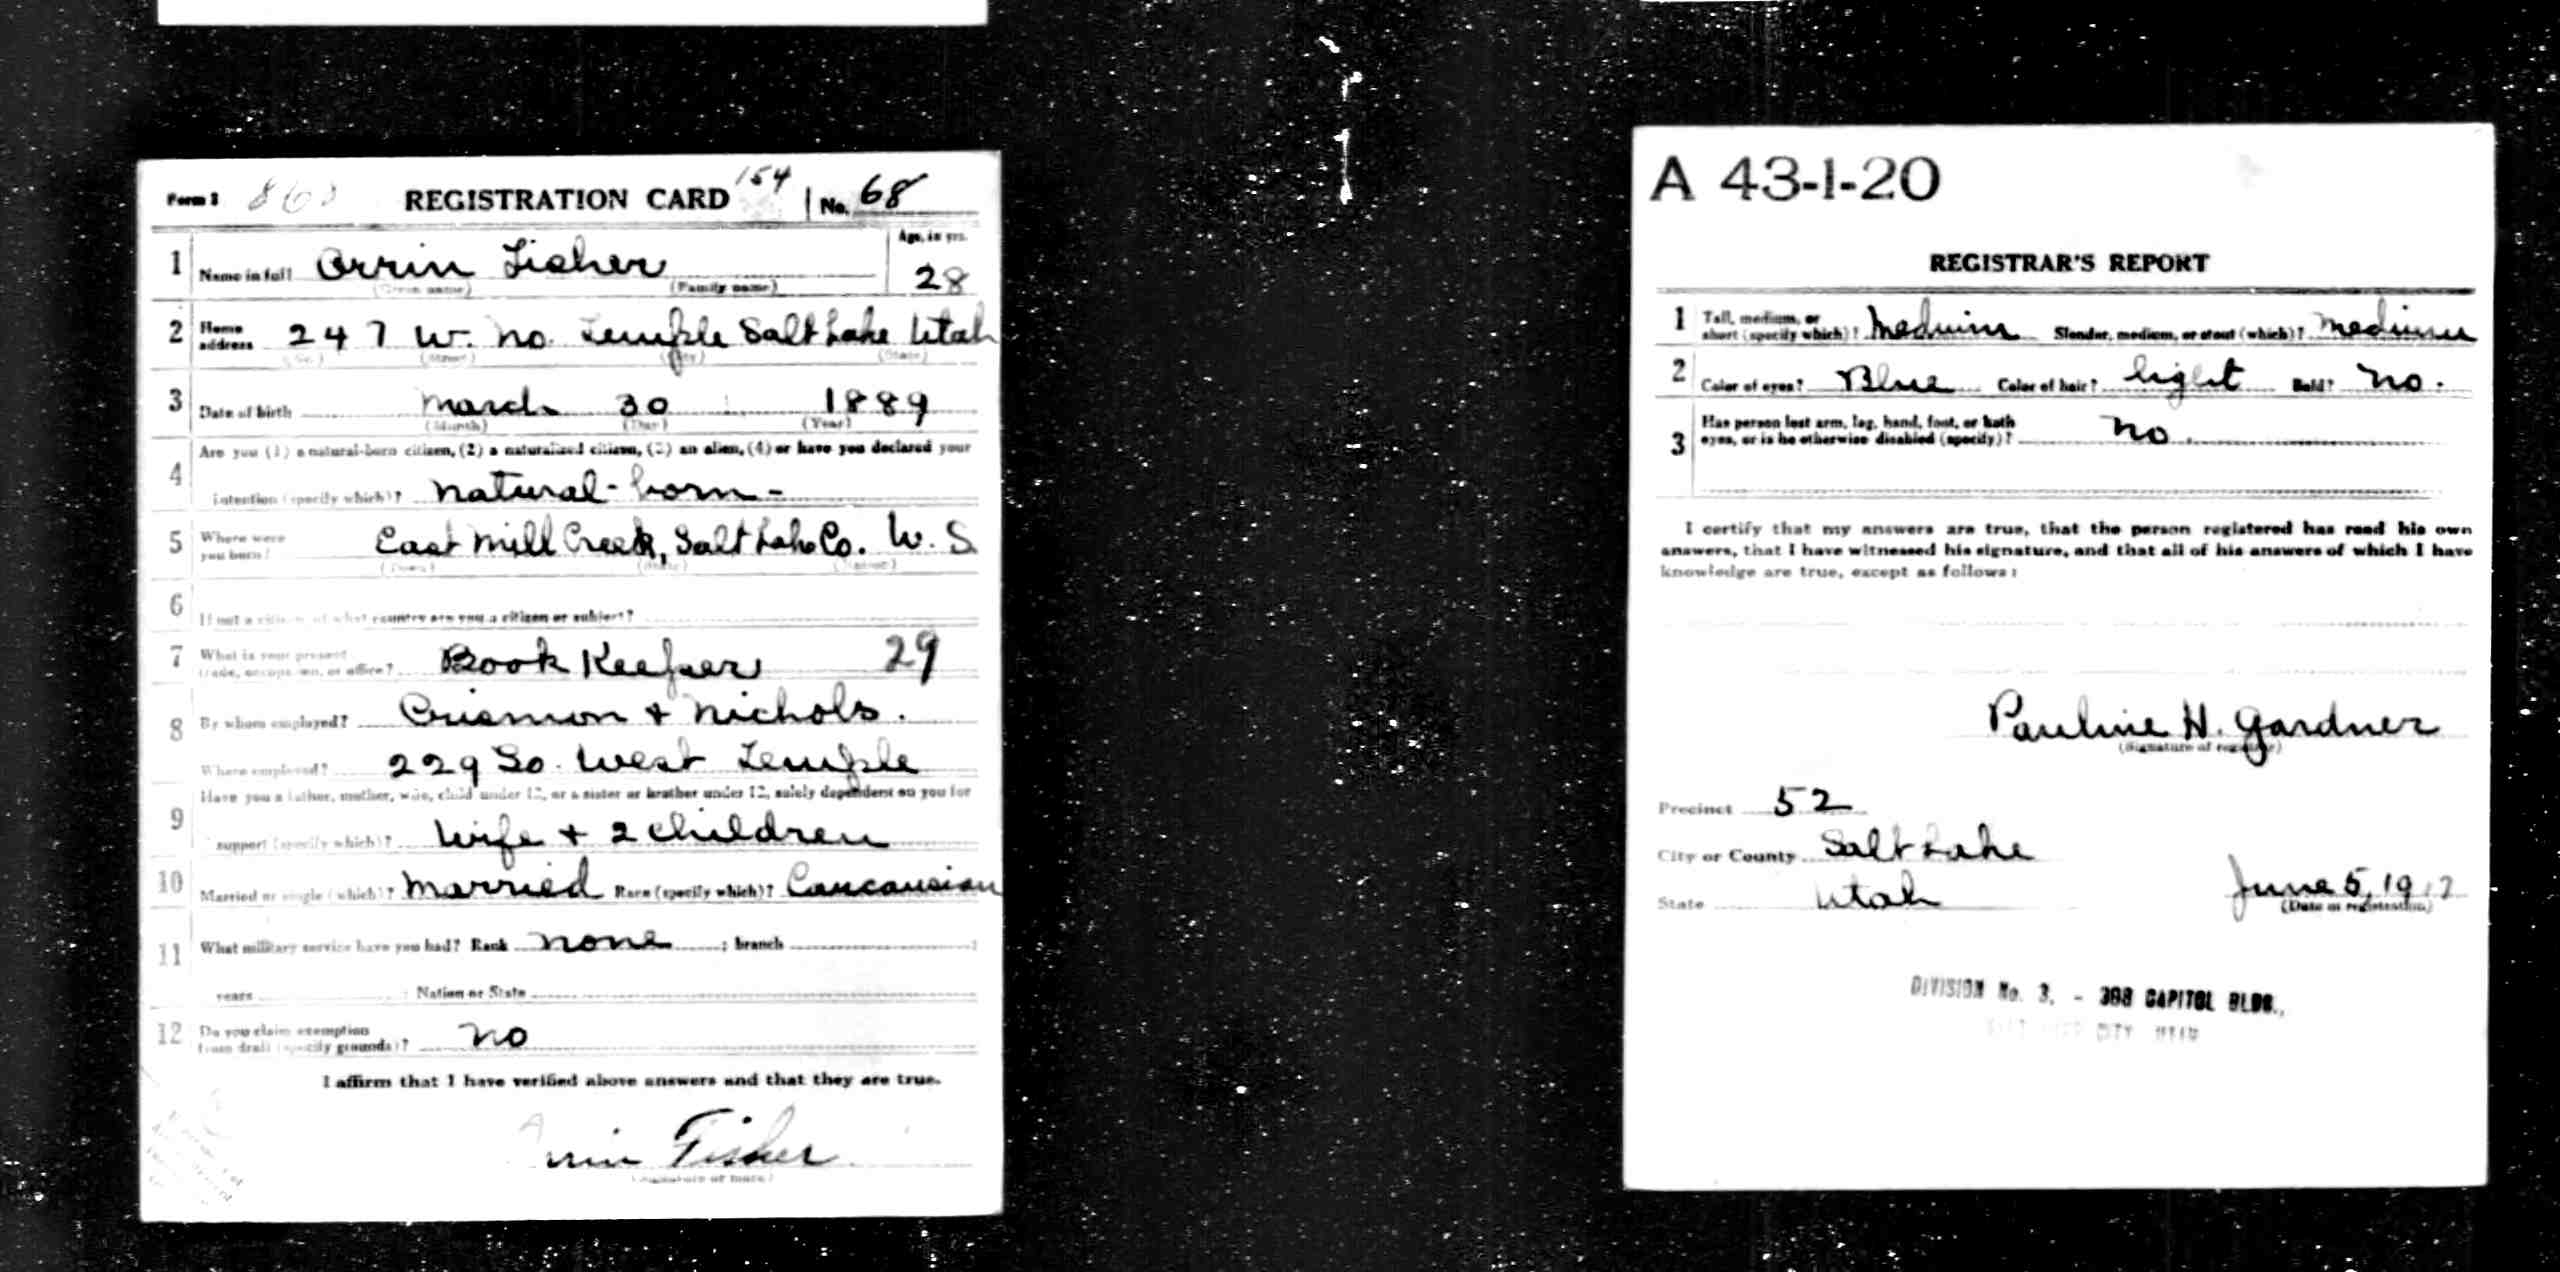 Form 1 REGISTRATION CARD 154 No. 68
1 Name in full Orrin Fisher Age, in yrs. 28
(Given name) (Family name)
2 Home address 247 W. No. Temple Salt Lake Utah
(No.) (Street) (City) (State)
3 Date of birth March 30 1889
(Month) (Day) (Year)
Are you (1) a natural-born citizen, (2) a naturalized citizen, (3) an alien, (4) or have you declared your
4 intention (specify which)? Natural-born-
5 Where were you born? East Mill Creek, Salt Lake Co. U. S
(Town) (State) (Nation)
6 If not a citizen, of what country are you a citizen or subject?
7 What is your present trade, occupation, or office? Book Keeper 29
8 By whom employed? Crismon + Nichols.
Where employed? 229 So. West Temple
9 Have you a father, mother, wife, child under 12, or a sister or brother under 12, solely dependent on you for
support (specify which)? Wife + 2 children
10 Married or single (which)? Married Race (specify which)? Caucausian
11 What military service have you had? Rank none ; branch ;
years ; Nation or State
12 Do you claim exemption from draft (specify grounds)? No
I affirm that I have verified above answers and that they are true.
Orrin Fisher
(Signature or mark)
A 43-1-20
REGISTRAR'S REPORT
1 Tall, medium, or short (specify which)? Medium Slender, medium, or stout (which)? Medium
2 Color of eyes? Blue Color of hair? light Bald? No.
3 Has person lost arm, leg, hand, foot, or both
eyes, or is he otherwise disabled (specify)? No.
I certify that my answers are true, that the person registered has read his own
answers, that I have witnessed his signature, and that all of his answers of which I have
knowledge are true, except as follows:
Pauline H. Gardner
(Signature of registrar)
Precinct 52
City or County Salt Lake
State Utah June 5, 1917
(Date of registration)
DIVISION No. 3, - 308 CAPITOL BLDG.,
CITY UTAH